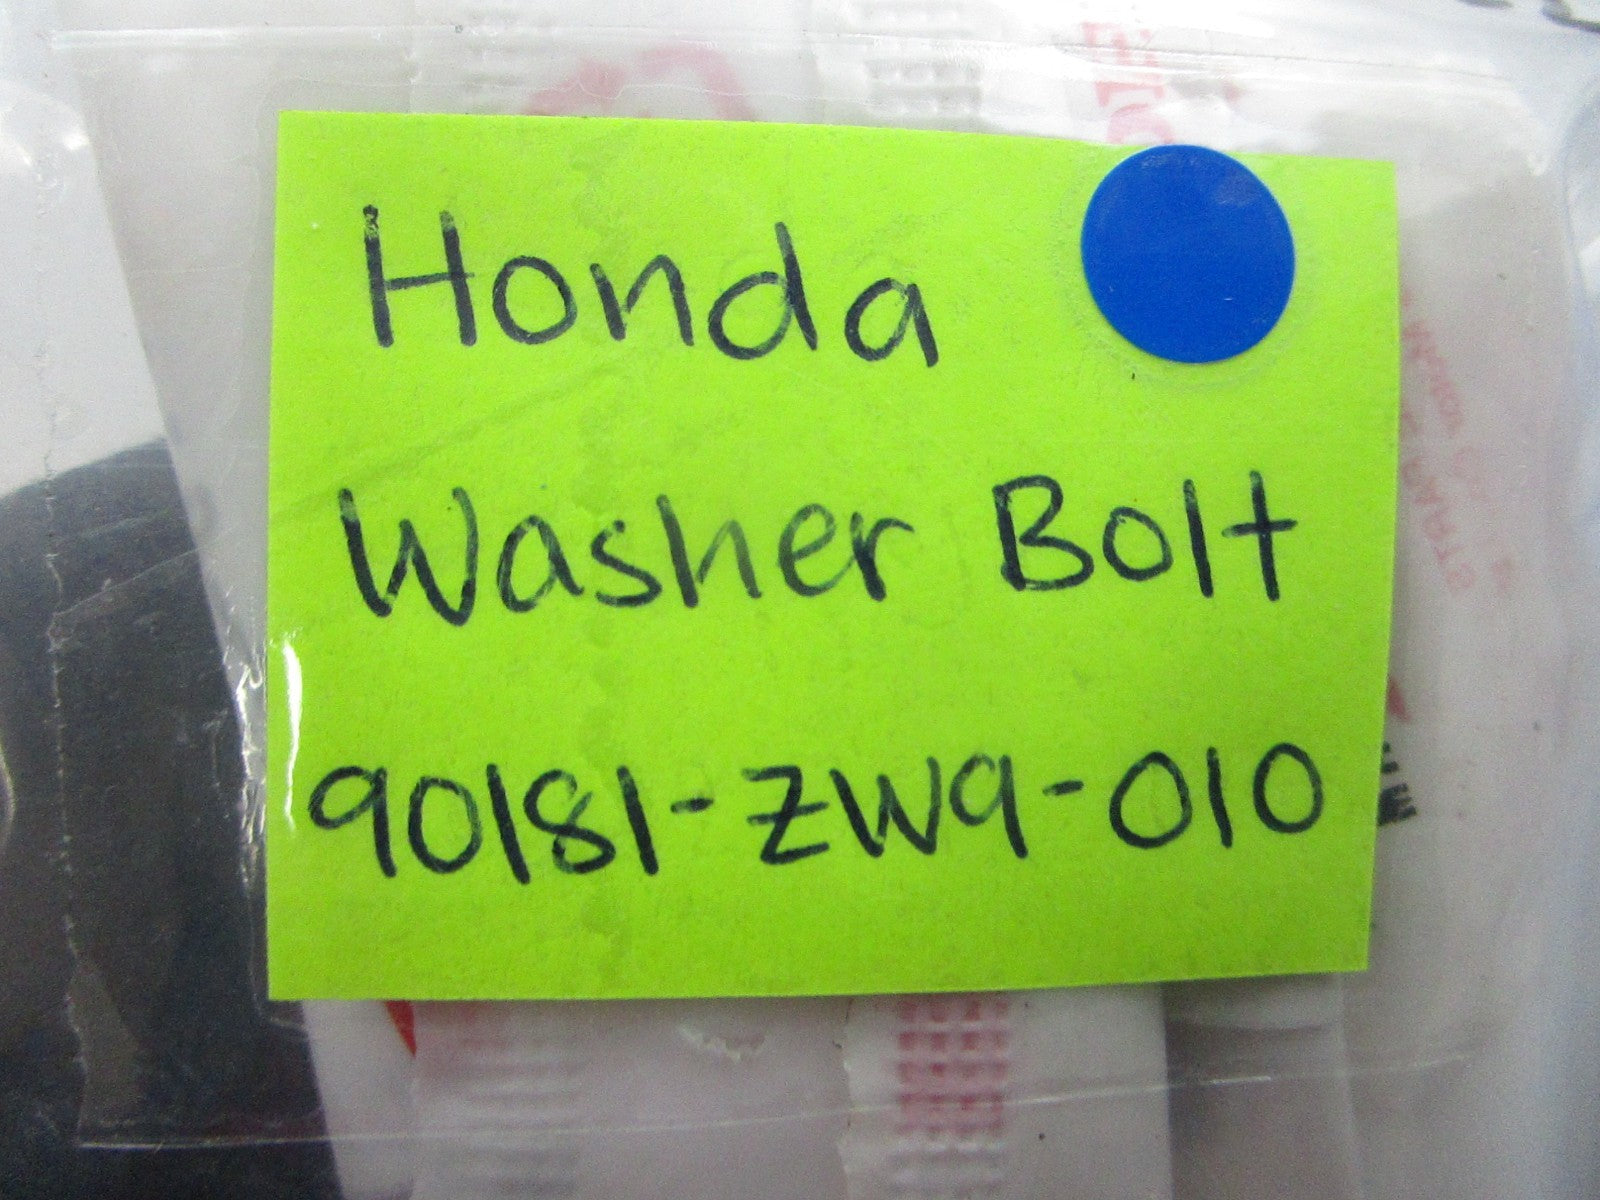 Honda
Washer Bolt
90181-ZW9-010